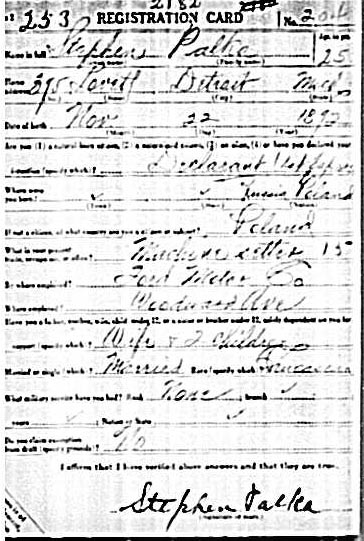 2182
253 REGISTRATION CARD No. 206
Name in full Stephens Palka Age, in yrs. 25
Home address 395 Detroit Mich
Date of birth Nov 22 1892
Are you (1) a natural-born citizen, (2) a naturalized citizen, (3) an alien, (4) or have you declared your
intention (specify which)? Declarant 1st papers
Where were you born? Russia Poland
If not a citizen, of what country are you a citizen or subject? Poland
What is your present trade, occupation, or office? Machine setter 15
By whom employed? Ford Motor Co
Where employed? Woodward Ave
Have you a father, mother, wife, child under 12, or a sister or brother under 12, solely dependent on you for
support (specify which)? Wife & 2 children
Married or single (which)? Married Race (specify which)? Caucasian
What military service have you had? Rank None ; branch
years ; Nation or State
Do you claim exemption from draft (specify grounds)? No
I affirm that I have verified above answers and that they are true.
Stephen Palka